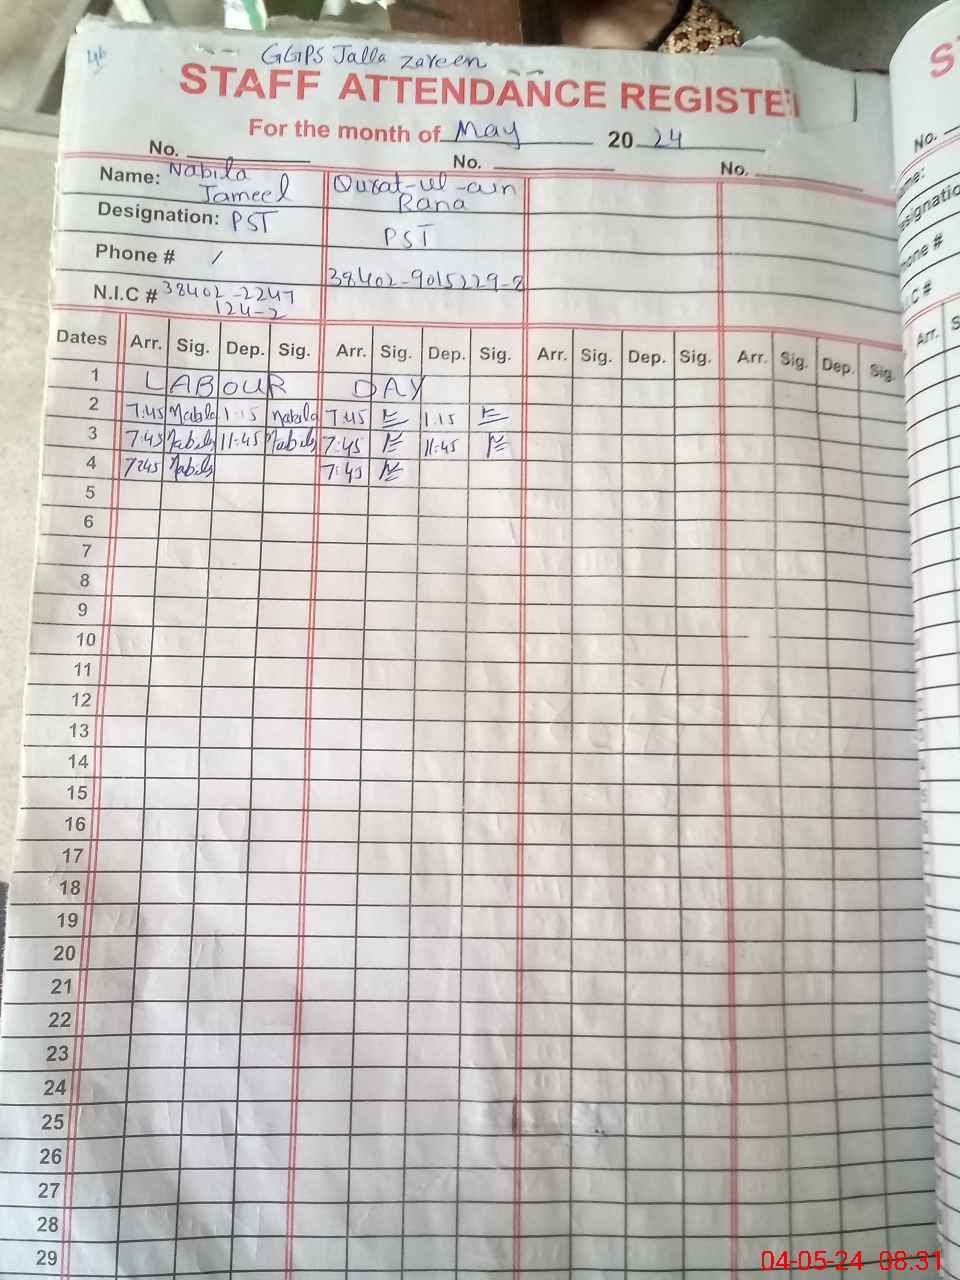 46
GGPS Jalla Zareen
STAFF ATTENDANCE REGISTE
For the month of May 2024
No. No. No.
Name: Nabila Jameel Qurat-ul-ain Rana
Designation: PST PST
Phone # /
N.I.C # 38402-2247124-2 38402-9015229-8
Dates Arr. Sig. Dep. Sig. Arr. Sig. Dep. Sig. Arr. Sig. Dep. Sig. Arr. Sig. Dep. Sig.
1 LABOUR DAY
2 7:45 Nabila 1:15 Nabila 7:45 1:15
3 7:45 Nabila 11:45 Nabila 7:45 11:45
4 7:45 Nabila 7:45
5
6
7
8
9
10
11
12
13
14
15
16
17
18
19
20
21
22
23
24
25
26
27
28
29
No.
me:
esignatio
one #
I.C #
Arr. S
04-05-24 08:31